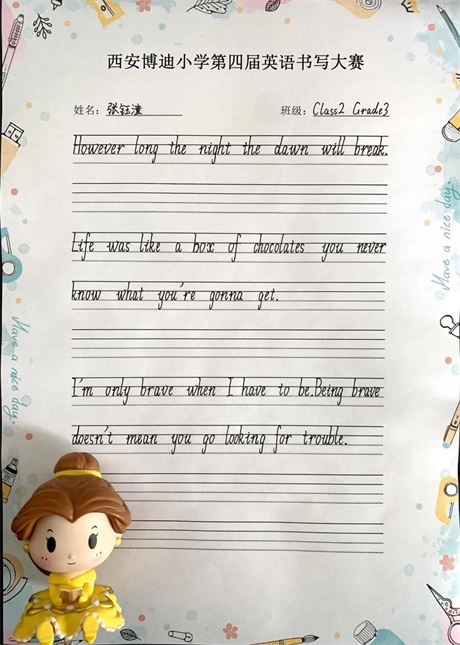 西安博迪小学第四届英语书写大赛
姓名：张钰潼 班级：Class2 Grade3
However long the night the dawn will break.
Life was like a box of chocolates you never
know what you're gonna get.
I'm only brave when I have to be.Being brave
doesn't mean you go looking for trouble.
Have a nice day.
Have a nice day.